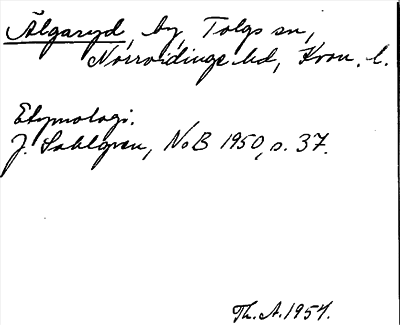 Älgaryd, by, Tolgs sn,
Norrvidinge hd, Kron. l.
Etymologi.
J. Sahlgren, NoB 1950, s. 37.
Th. A. 1957.